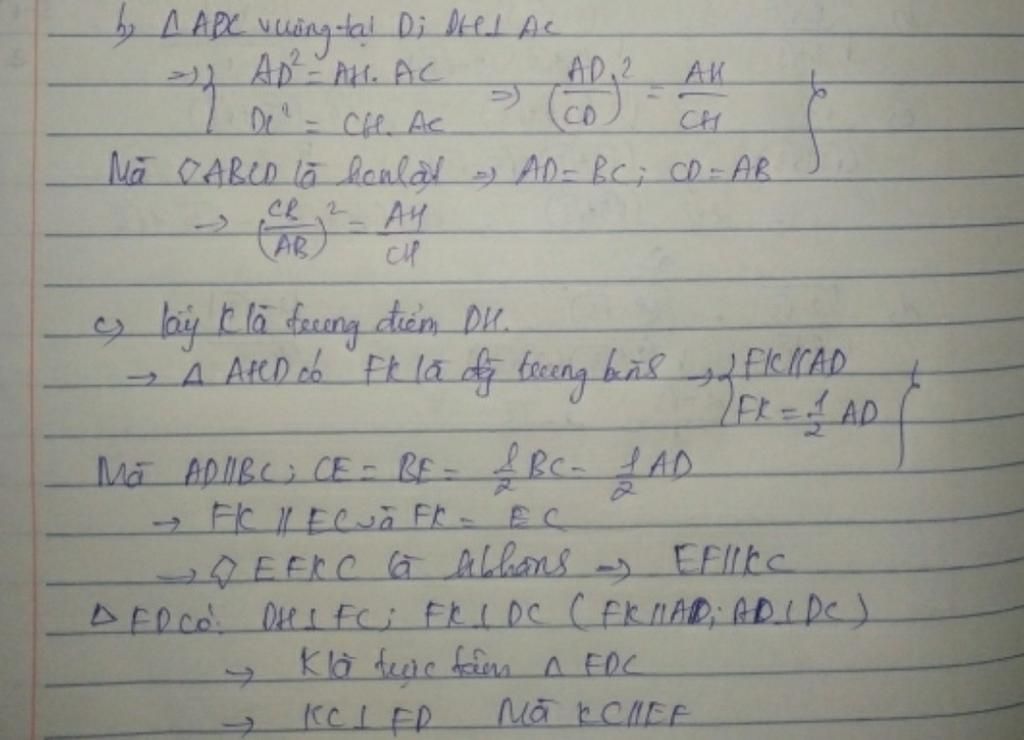 b, Δ ADC vuông tại D; DH⊥AC
=> { AD² = AH. AC
DC² = CH. AC => (AD/CD)² = AH/CH }
Mà ◇ABCD là hcnhật => AD = BC; CD = AB
→ (CB/AB)² = AH/CH
c, lấy K là trung điểm DH.
→ Δ AHD có FK là đg trung bình → { FK//AD
FK = 1/2 AD }
Mà AD//BC; CE = BE = 1/2 BC = 1/2 AD
→ FK // EC và FK = EC
→ ◇ EFKC là hbhành → EF//KC
Δ FDC có: DH⊥FC; FK⊥DC (FK//AD; AD⊥DC)
→ K là trực tâm Δ FDC
→ KC⊥FD Mà KC//EF